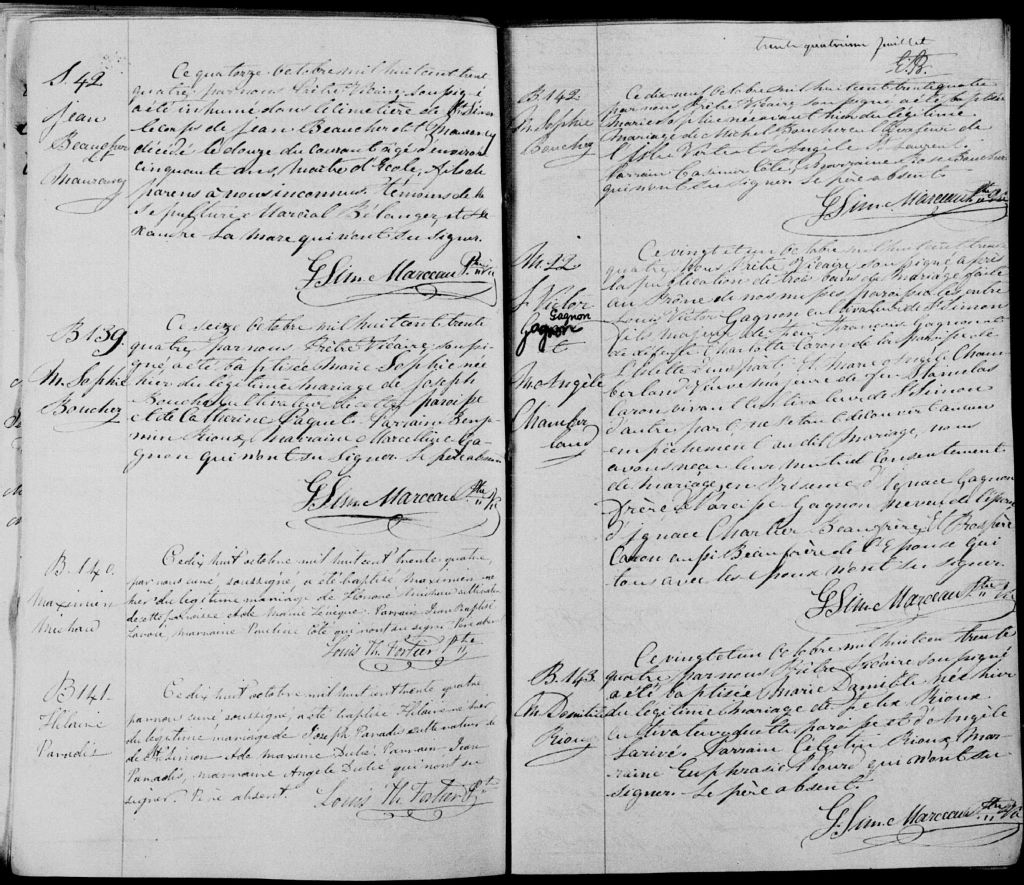 S. 42
Jean
Beaucher
Maurancy
Ce quatorze octobre mil huit cent trente
quatre, par nous Prêtre Vicaire soussigné
a été inhumé dans le cimetière de St Simon
le corps de Jean Beaucher dit Maurency
décédé le douze du courant agé d'environ
cinquante ans, Maitre d'Ecole, fils de
parens à nous inconnus. Témoins de la
sepulture Marcial Bélanger, et
La Mare qui n'ont su signer.
G. Sim. Marceau Ptre Vic
B 139.
M. Sophie
Boucher
Ce seize octobre mil huit cent trente
quatre, par nous Prêtre Vicaire, soussi-
gné, a été baptisée Marie Sophie née
hier du légitime mariage de Joseph
Boucher, cultivateur de cette paroisse
et de Catherine Paquet. Parrain Benja-
min Rioux, marraine Marcelline Ga-
gnon qui n'ont su signer. Le père absent
G. Sim. Marceau Ptre Vic
B. 140.
Maximien
Michaud
Ce dix huit octobre mil huit cent trente quatre,
par nous curé, soussigné, a été baptisé Maximien né
hier du légitime mariage de Michaud cultivateur
de cette paroisse et de Marie Levêque. Parrain Jean Baptiste
Lavoie, marraine Pauline Côté qui n'ont su signer. Père absent
Louis Th. Fortier Ptre
B 141.
Hilaire
Paradis
Ce dix huit octobre mil huit cent trente quatre
par nous curé, soussigné, a été baptisé Hilaire né hier
du légitime mariage de Joseph Paradis cultivateur
de St Simon & de Dubé. Parrain Jean
Paradis, marraine Angele Dubé qui n'ont su
signer. Père absent.
Louis Th. Fortier Ptre
trente quatrième Juillet
B 142
M. Sophie
Boucher
Ce dix neuf octobre mil huit cent trente quatre
par nous Prêtre Vicaire soussigné a été baptisée
Marie Sophie née avant hier du légitime
mariage de Michel Boucher cultivateur de
l'Isle Verte et Angèle St Laurent.
Parrain Casimir Côté, Marraine Rose Boucher
qui n'ont su signer. Le père absent.
G. Sim. Marceau Ptre Vic
M. 22
L. Victor
Gagnon
Gagnon
et
M. Angèle
Chamber
land
Ce vingt et un octobre mil huit cent trente
quatre, nous Prêtre Vicaire, soussigné après
la publication de trois bans de mariage faite
au Prône de nos messes paroissiales entre
Louis Victor Gagnon cultivateur de St Simon
fils majeur de feu François Gagnon et
de défunte Charlotte Caron de la paroisse de
l'Islette d'une part; Et Marie Angèle Cham-
berland Veuve majeure de feu Stanislas
Caron vivant cultivateur de St Simon
d'autre part; ne s'étant découvert aucun
empêchement au dit Mariage, nous
avons reçu leur mutuel consentement
de mariage, en présence d'Ignace Gagnon
frère, Gagnon neveu de l'époux
d'Ignace Chartier Beaufrère, et Prospère
Caron aussi Beaufrère de l'Epouse qui
tous avec les époux n'ont su signer.
G. Sim. Marceau Ptre Vic
B. 143.
M. Domitile
Rioux
Ce vingt et un octobre mil huit cent trente
quatre par nous Prêtre Vicaire soussigné
a été baptisée Marie Domitile née hier
du légitime mariage de Félix Rioux
cultivateur de cette paroisse et d'Angèle
Larivé. Parrain Celestin Rioux, Mar-
raine Euphrasie qui n'ont su
signer. Le père absent.
G. Sim. Marceau Ptre Vic